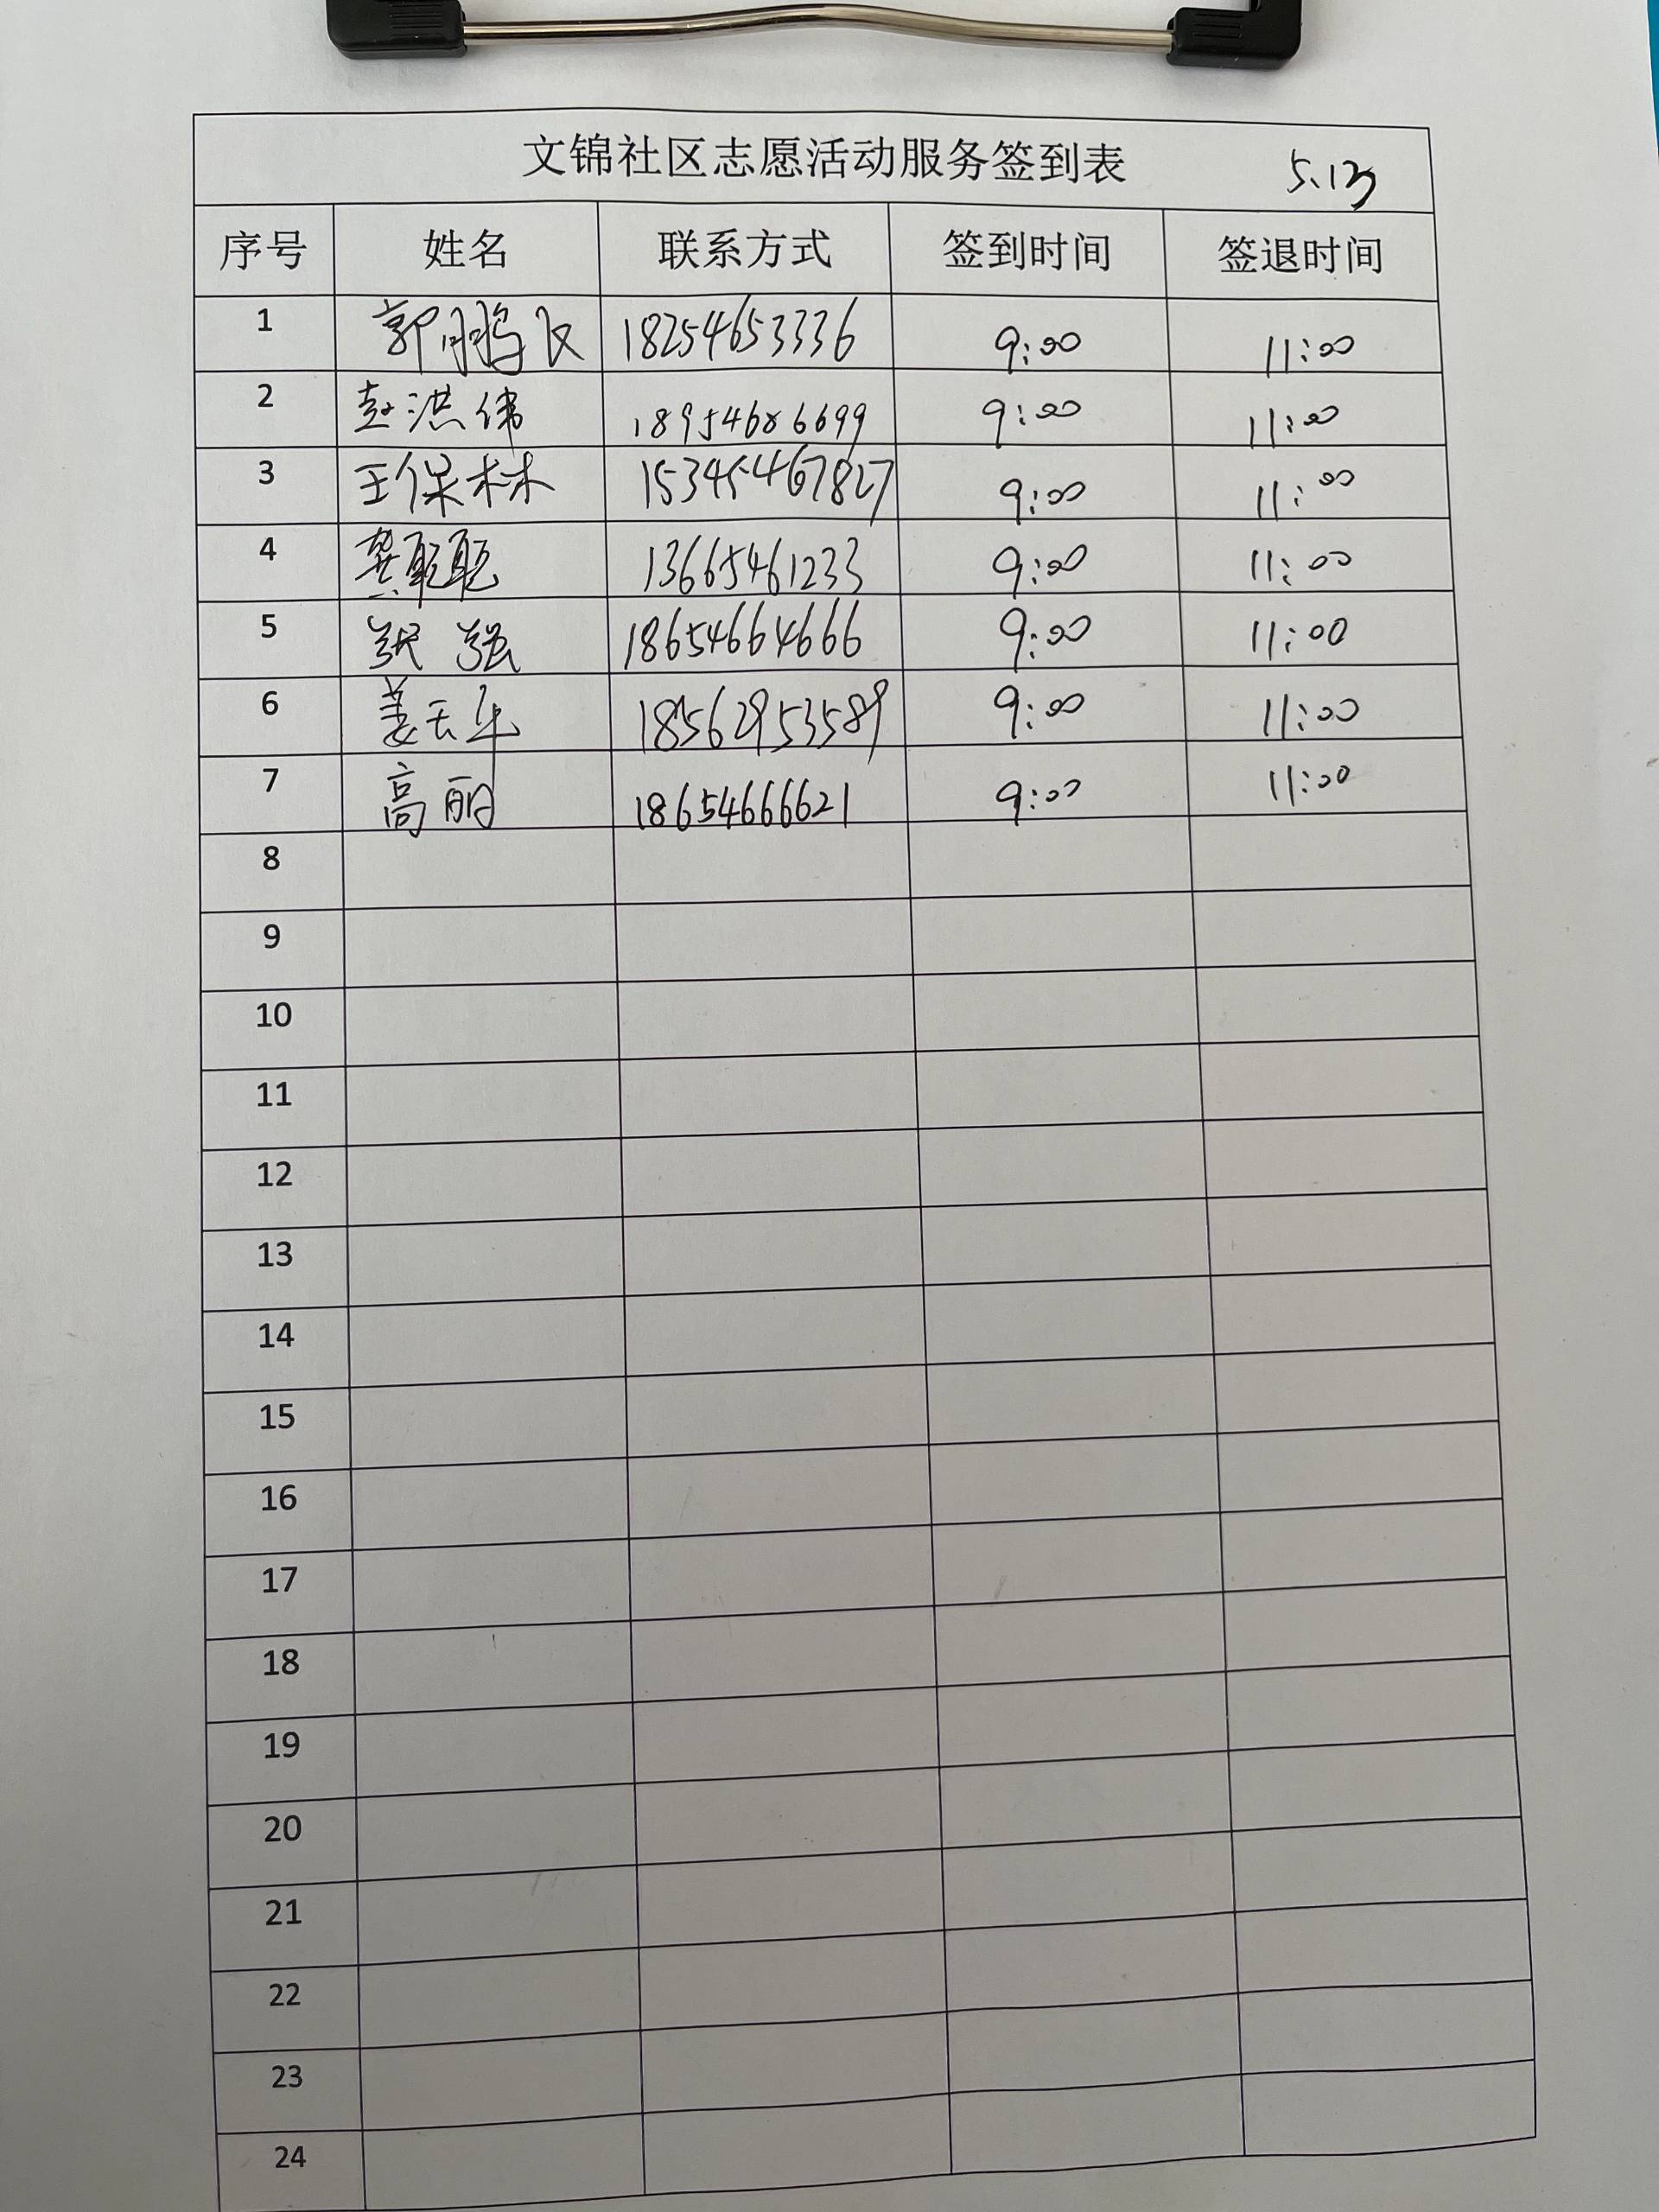 文锦社区志愿活动服务签到表 5.13
序号 姓名 联系方式 签到时间 签退时间
1 郭鹏飞 18254653336 9:00 11:00
2 赵洪伟 18954686699 9:00 11:00
3 王保林 15345467827 9:00 11:00
4 龚聪聪 13665461233 9:00 11:00
5 张强 18654664666 9:00 11:00
6 姜 18562953589 9:00 11:00
7 高丽 18654666621 9:00 11:00
8
9
10
11
12
13
14
15
16
17
18
19
20
21
22
23
24